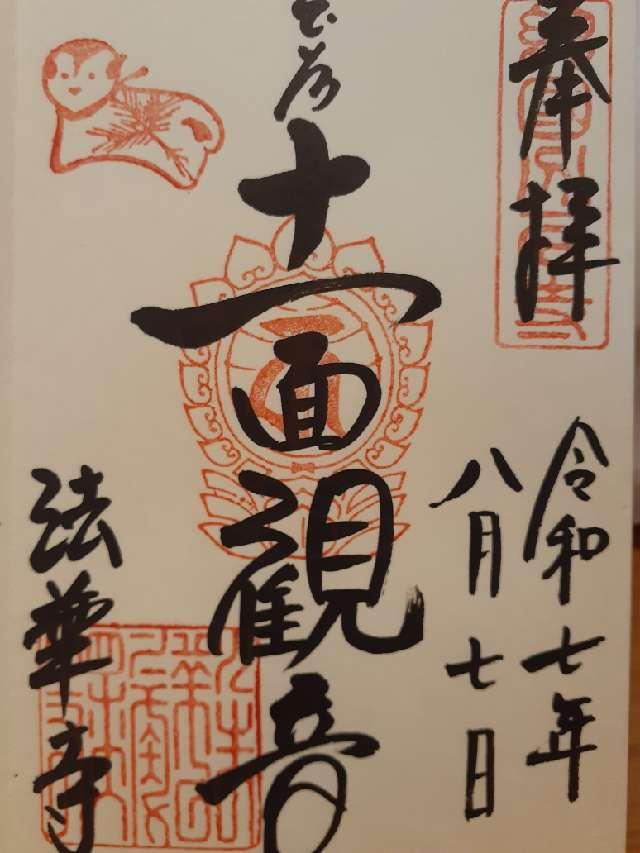 奉拝
令和七年
八月七日
十一面観音
法華寺